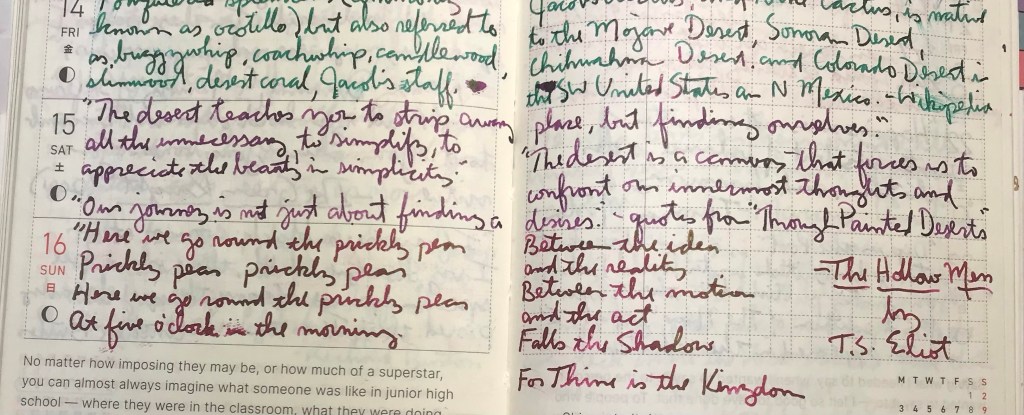 14
FRI
金
known as ocotillo) but also referred to
as, buggywhip, coachwhip, candlewood,
slimwood, desert coral, Jacob's staff.
15
SAT
土
"The desert teaches you to strip away
all the unnecessary, to simplify, to
appreciate the beauty in simplicity."
"Our journey is not just about finding a
16
SUN
日
"Here we go round the prickly pear
Prickly pear prickly pear
Here we go round the prickly pear
At five o'clock in the morning
No matter how imposing they may be, or how much of a superstar,
you can almost always imagine what someone was like in junior high
school — where they were in the classroom, what they were doing
Cactus, is native
to the Mojave Desert, Sonoran Desert,
Chihuahua Desert, and Colorado Desert in
the SW United States an N Mexico. - Wikipedia
place, but finding ourselves."
"The desert is a canvas that forces us to
confront our innermost thoughts and
desires." - quotes from "Through Painted Deserts"
Between the idea
and the reality
Between the motion
and the act
Falls the Shadow
- The Hollow Men
by
T.S. Eliot
For Thine is the Kingdom
M T W T F S S
1 2
3 4 5 6 7 8 9